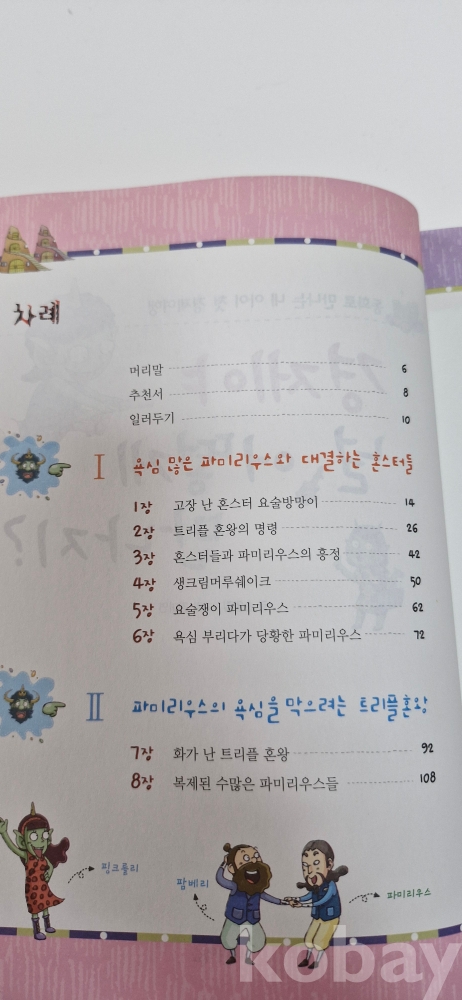 차례
머리말 6
추천서 8
일러두기 10
Ⅰ 욕심 많은 파미리우스와 대결하는 혼스터들
1장 고장 난 혼스터 요술방망이 14
2장 트리플 혼왕의 명령 26
3장 혼스터들과 파미리우스의 흥정 42
4장 생크림머루쉐이크 50
5장 요술쟁이 파미리우스 62
6장 욕심 부리다가 당황한 파미리우스 72
Ⅱ 파미리우스의 욕심을 막으려는 트리플혼왕
7장 화가 난 트리플 혼왕 92
8장 복제된 수많은 파미리우스들 108
핑크롤리
팜베리
파미리우스
kobay